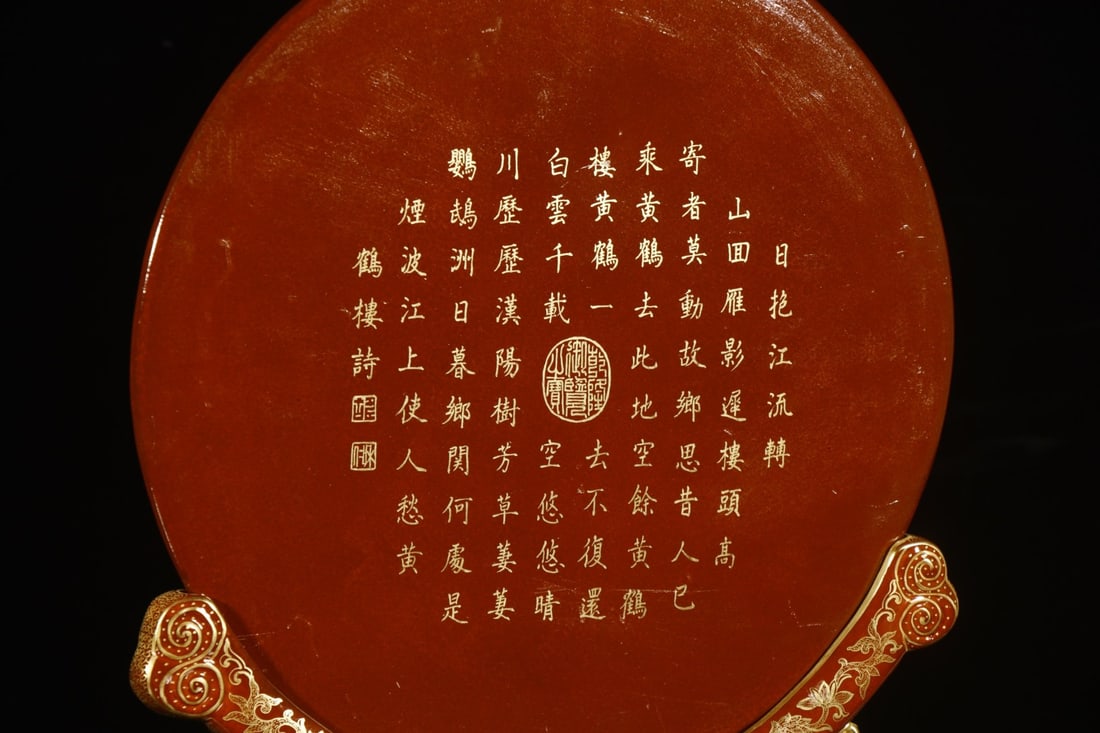 日抱江流轉
山囬雁影遲樓頭高
寄者莫動故鄉思昔人已
乘黃鶴去此地空餘黃鶴
樓黃鶴一去不復還
白雲千載空悠悠晴
川歷歷漢陽樹芳草萋萋
鸚鵡洲日暮鄉関何處是
煙波江上使人愁黃
鶴樓詩
乾隆御覽之寶